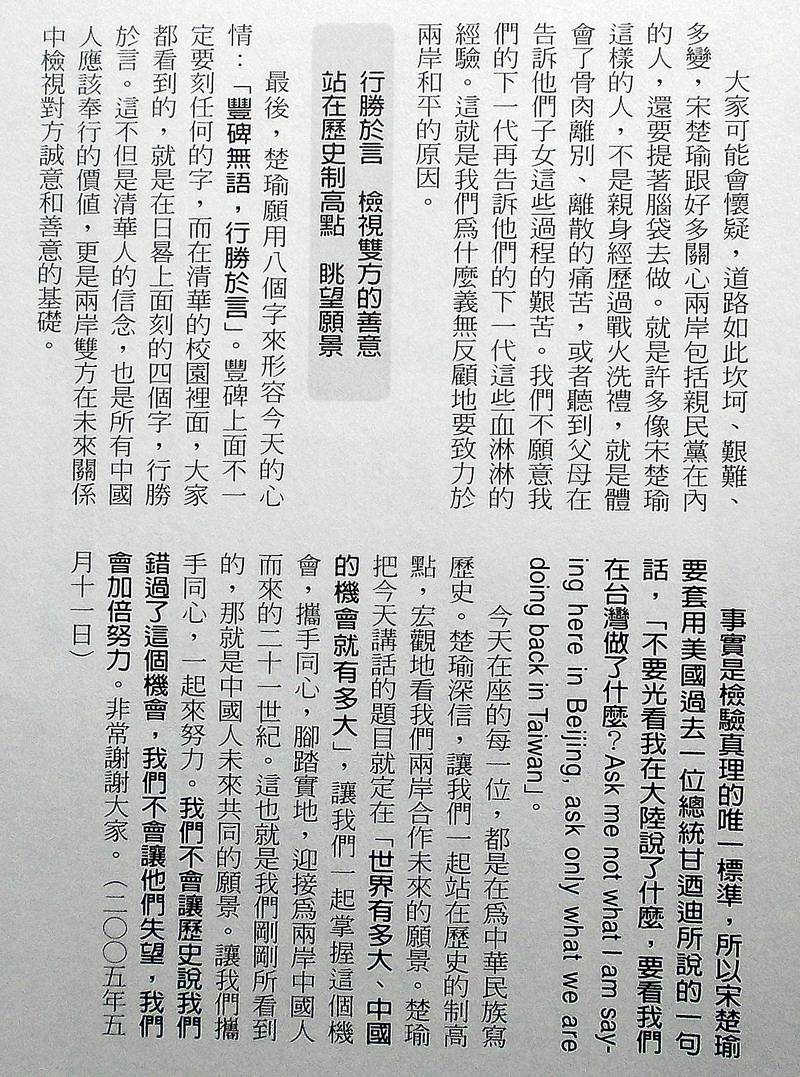 大家可能會懷疑，道路如此坎坷、艱難、
多變，宋楚瑜跟好多關心兩岸包括親民黨在內
的人，還要提著腦袋去做。就是許多像宋楚瑜
這樣的人，不是親身經歷過戰火洗禮，就是體
會了骨肉離別、離散的痛苦，或者聽到父母在
告訴他們子女這些過程的艱苦。我們不願意我
們的下一代再告訴他們的下一代這些血淋淋的
經驗。這就是我們爲什麼義無反顧地要致力於
兩岸和平的原因。
行勝於言　檢視雙方的善意
站在歷史制高點　眺望願景
最後，楚瑜願用八個字來形容今天的心
情：「豐碑無語，行勝於言」。豐碑上面不一
定要刻任何的字，而在清華的校園裡面，大家
都看到的，就是在日晷上面刻的四個字，行勝
於言。這不但是清華人的信念，也是所有中國
人應該奉行的價值，更是兩岸雙方在未來關係
中檢視對方誠意和善意的基礎。
事實是檢驗真理的唯一標準，所以宋楚瑜
要套用美國過去一位總統甘迺迪所說的一句
話，「不要光看我在大陸說了什麼，要看我們
在台灣做了什麼？Ask me not what I am say-
ing here in Beijing, ask only what we are
doing back in Taiwan」。
今天在座的每一位，都是在爲中華民族寫
歷史。楚瑜深信，讓我們一起站在歷史的制高
點，宏觀地看我們兩岸合作未來的願景。楚瑜
把今天講話的題目就定在「世界有多大、中國
的機會就有多大」，讓我們一起掌握這個機
會，攜手同心，腳踏實地，迎接爲兩岸中國人
而來的二十一世紀。這也就是我們剛剛所看到
的，那就是中國人未來共同的願景。讓我們攜
手同心，一起來努力。我們不會讓歷史說我們
錯過了這個機會，我們不會讓他們失望，我們
會加倍努力。非常謝謝大家。（二〇〇五年五
月十一日）